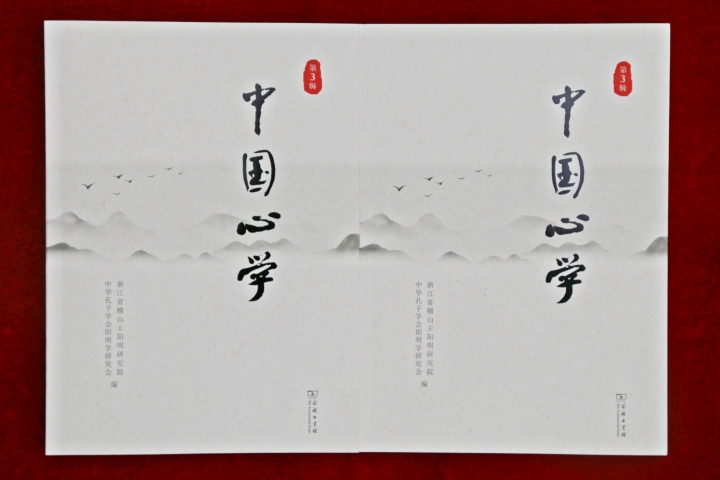 第3辑
中国心学
浙江省稽山王阳明研究院
中华孔子学会阳明学研究会 编
商务印书馆
The Commercial Press
第3辑
中国心学
浙江省稽山王阳明研究院
中华孔子学会阳明学研究会 编
商务印书馆
The Commercial Press